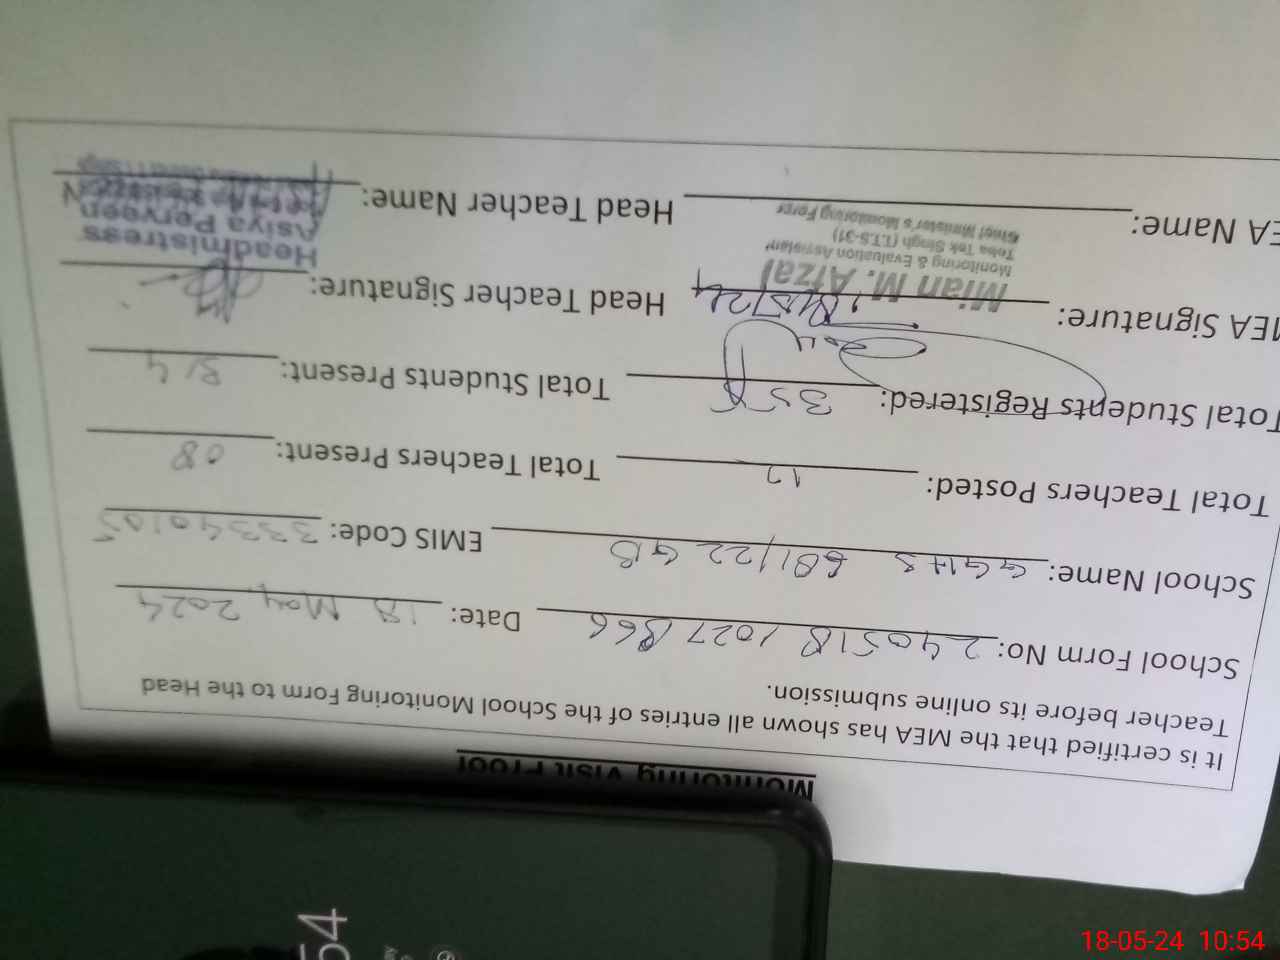 Monitoring Visit Proof
It is certified that the MEA has shown all entries of the School Monitoring Form to the Head
Teacher before its online submission.
School Form No: 240518/027/866 Date: 18 May, 2024
School Name: GGHS 681/22 GB EMIS Code: 33340105
Total Teachers Posted: 12 Total Teachers Present: 08
Total Students Registered: 358 Total Students Present: 314
MEA Signature: Head Teacher Signature:
Mian M. Afzal
Monitoring & Evaluation Assistant
Toba Tek Singh (T.T.S-31)
Chief Minister's Monitoring Force
Headmistress
Asiya Perveen
EA Name: Head Teacher Name:
54
18-05-24 10:54